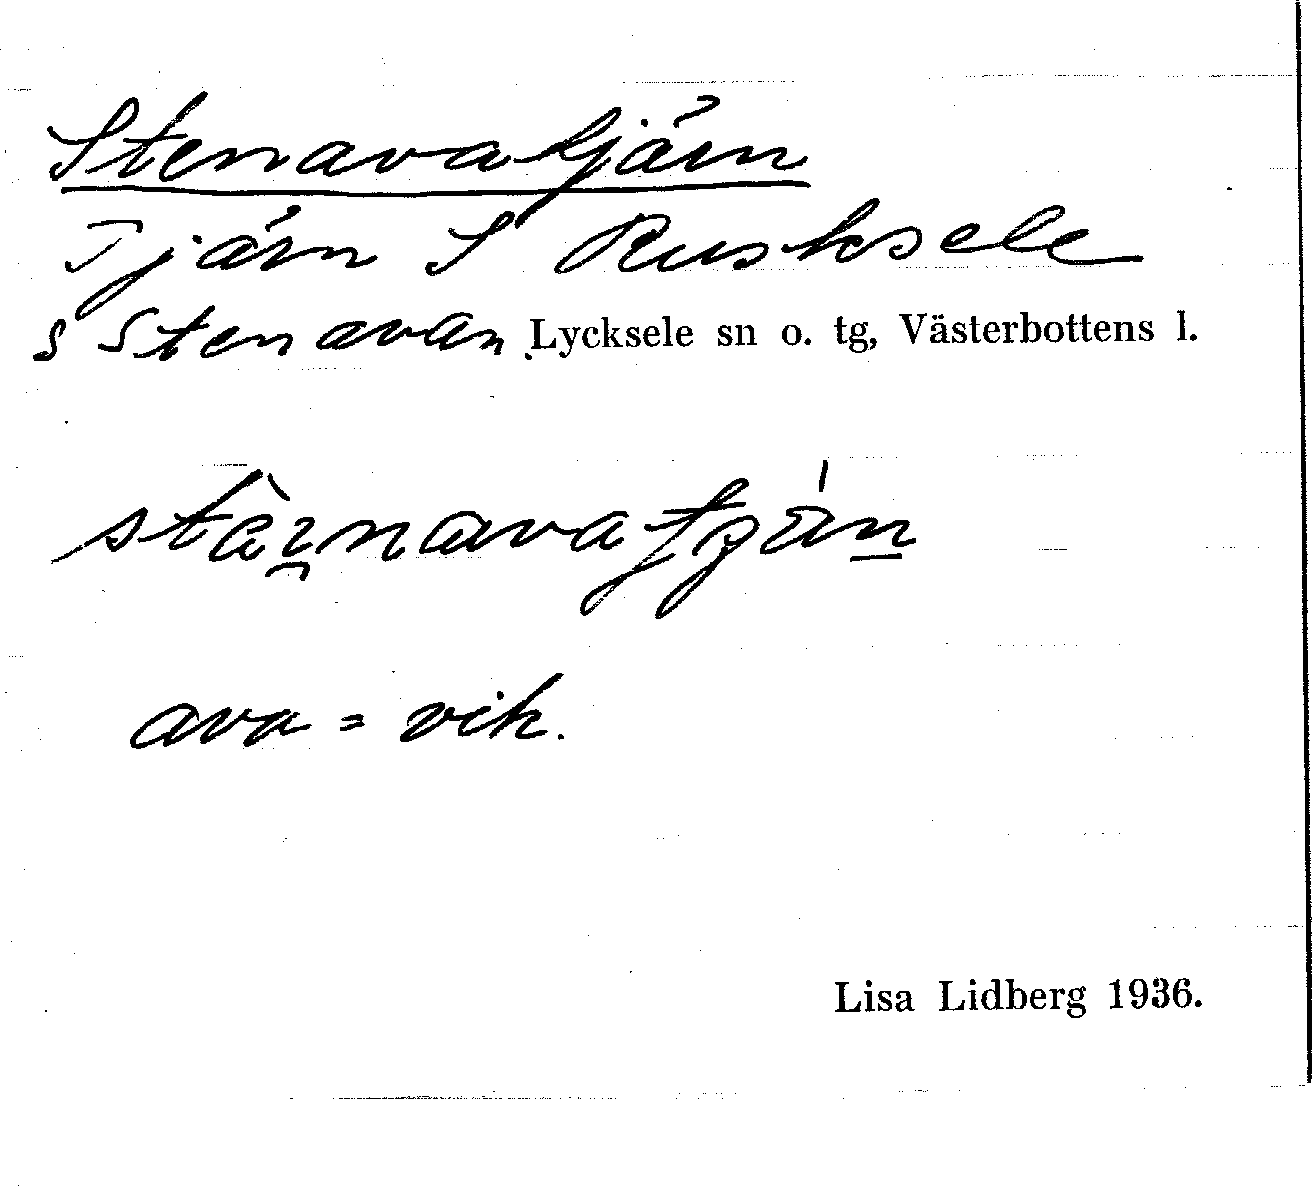 Stenavatjärn
Tjärn S Rusksele
S Stenavan. Lycksele sn o. tg, Västerbottens l.
ava = vik.
Lisa Lidberg 1936.